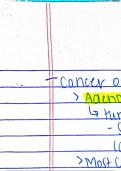 - Cancer o
> Adeno
↳ tur
-
> Most c